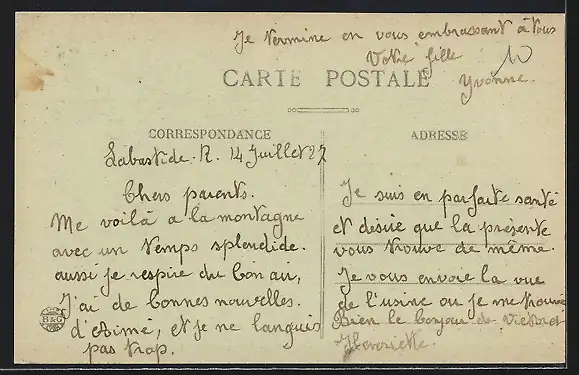 Je termine en vous embrassant à tous
Votre fille
Yvonne.
CARTE POSTALE
CORRESPONDANCE
ADRESSE
Labastide. R. 14 Juillet 27
Chers parents.
Me voilà a la montagne
avec un temps splendide.
aussi je respire du bon air,
J'ai de bonnes nouvelles.
d'Aimé, et je ne languis
pas trop.
B&G
Je suis en parfaite santé
et désire que la présente
vous trouve de même.
Je vous envoie la vue
de l'usine ou je me trouve
Bien le bonjour de Victor et
Henriette.